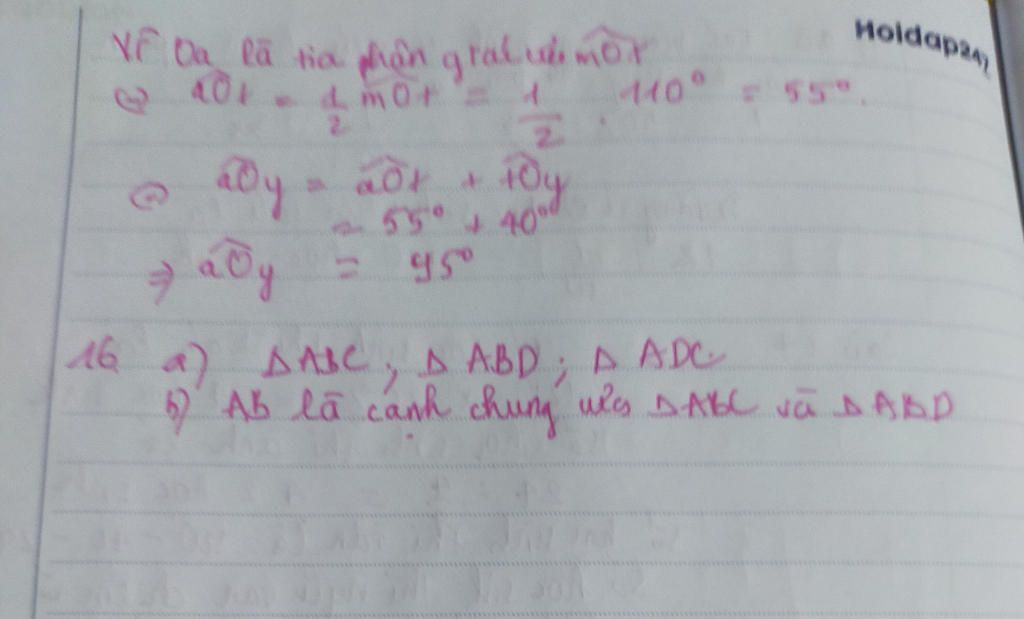 Hoidap247
Vì Oa là tia phân giác của mOt
⇔ aOt = 1/2 mOt = 1/2 . 110° = 55°.
⇔ aOy = aOt + tOy
= 55° + 40°
⇒ aOy = 95°
16 a) Δ ABC ; Δ ABD ; Δ ADC
b) AB là cạnh chung của Δ ABC và Δ ABD